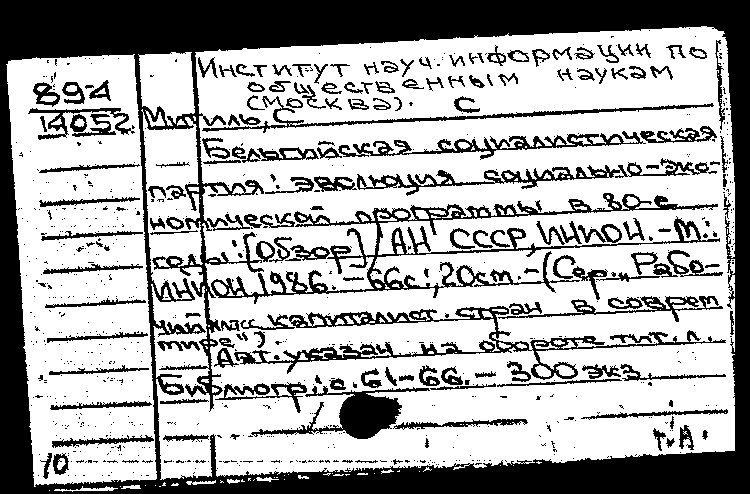 Институт науч. информации по
общественным наукам
(Москва). С
894
14052
Митиль, С
Бельгийская социалистическая
партия: эволюция социально-эко-
номической программы в 80-е
годы: [Обзор] / АН СССР, ИНИОН. - М.:
ИНИОН, 1986. - 66с.; 20см. - (Сер. „Рабо-
чий класс капиталист. стран в соврем.
мире")
Авт. указан на обороте тит. л.
Библиогр.: с. 61-66. - 300 экз.
т.А.
10